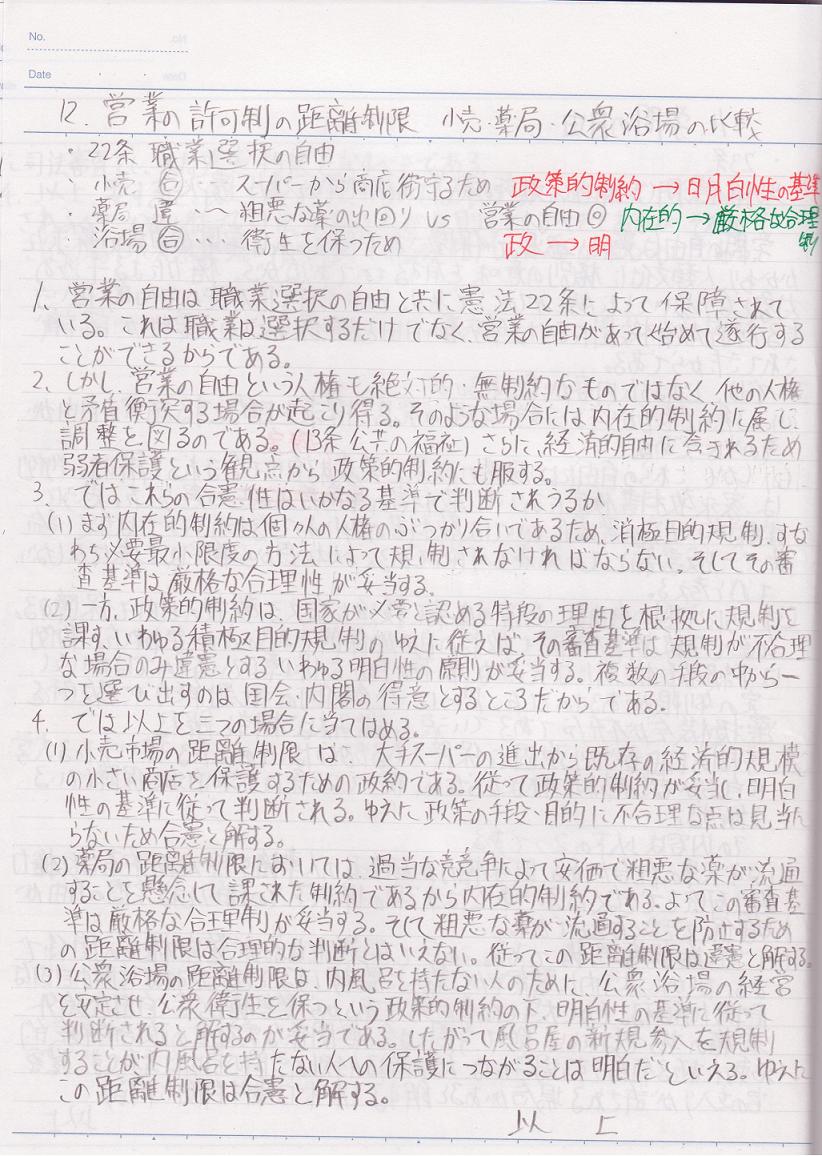 No.
Date
12. 営業の許可制の距離制限 小売・薬局・公衆浴場の比較
・22条 職業選択の自由
小売 合 ‥ スーパーから商店街守るため 政策的制約 → 明白性の基準
・薬局 違 ‥〜 粗悪な薬の出回り vs 営業の自由◎ 内在的 → 厳格な合理制
・浴場 合 … 衛生を保つため 政 → 明
1、営業の自由は職業選択の自由と共に憲法22条によって保障されて
いる。これは職業は選択するだけでなく、営業の自由があって始めて遂行する
ことができるからである。
2、しかし、営業の自由という人権も絶対的・無制約なものではなく他の人権
と矛盾衝突する場合が起こり得る。そのような場合には内在的制約に属し、
調整と図るのである。(13条公共の福祉) さらに、経済的自由に含まれるため
弱者保護という観点から政策的制約にも服する。
3、ではこれらの合憲性はいかなる基準で判断されうるか
(1) まず内在的制約は個々人の人権のぶつかり合いであるため、消極目的規制、すな
わち必要最小限度の方法によって規制されなければならない。そしてその審
査基準は厳格な合理性が妥当する.
(2) 一方、政策的制約は、国家が必要と認める特段の理由を根拠にした規制を
課す、いわゆる積極目的規制のゆえに従えば、その審査基準は規制が不合理
な場合のみ違憲とするいわゆる明白性の原則が妥当する。複数の手段の中から一
つを選び出すのは国会・内閣の得意とするところだからである.
4、では以上を三つの場合に当てはめる。
(1) 小売市場の距離制限は、大手スーパーの進出から既存の経済的規模
の小さい商店を保護するための政約である。従って政策的制約が妥当し、明白
性の基準に従って判断される。ゆえに政策の手段・目的に不合理な点は見当た
らないため合憲と解する。
(2) 薬局の距離制限においては、過当な競争によって安価で粗悪な薬が流通
することを懸念して課された制約であるから内在的制約である、よってこの審査基
準は厳格な合理制が妥当する。そして粗悪な薬が流通することを防止するため
の距離制限は合理的な判断とはいえない。従ってこの距離制限は違憲と解する。
(3) 公衆浴場の距離制限は、内風呂を持たない人のために、公衆浴場の経営
を安定させ、公衆衛生を保つという政策的制約の下、明白性の基準に従って
判断されると解するのが妥当である。したがって風呂屋の新規参入を規制
することが内風呂を持たない人への保護につながることは明白だといえる。ゆえに
この距離制限は合憲と解する。
以上